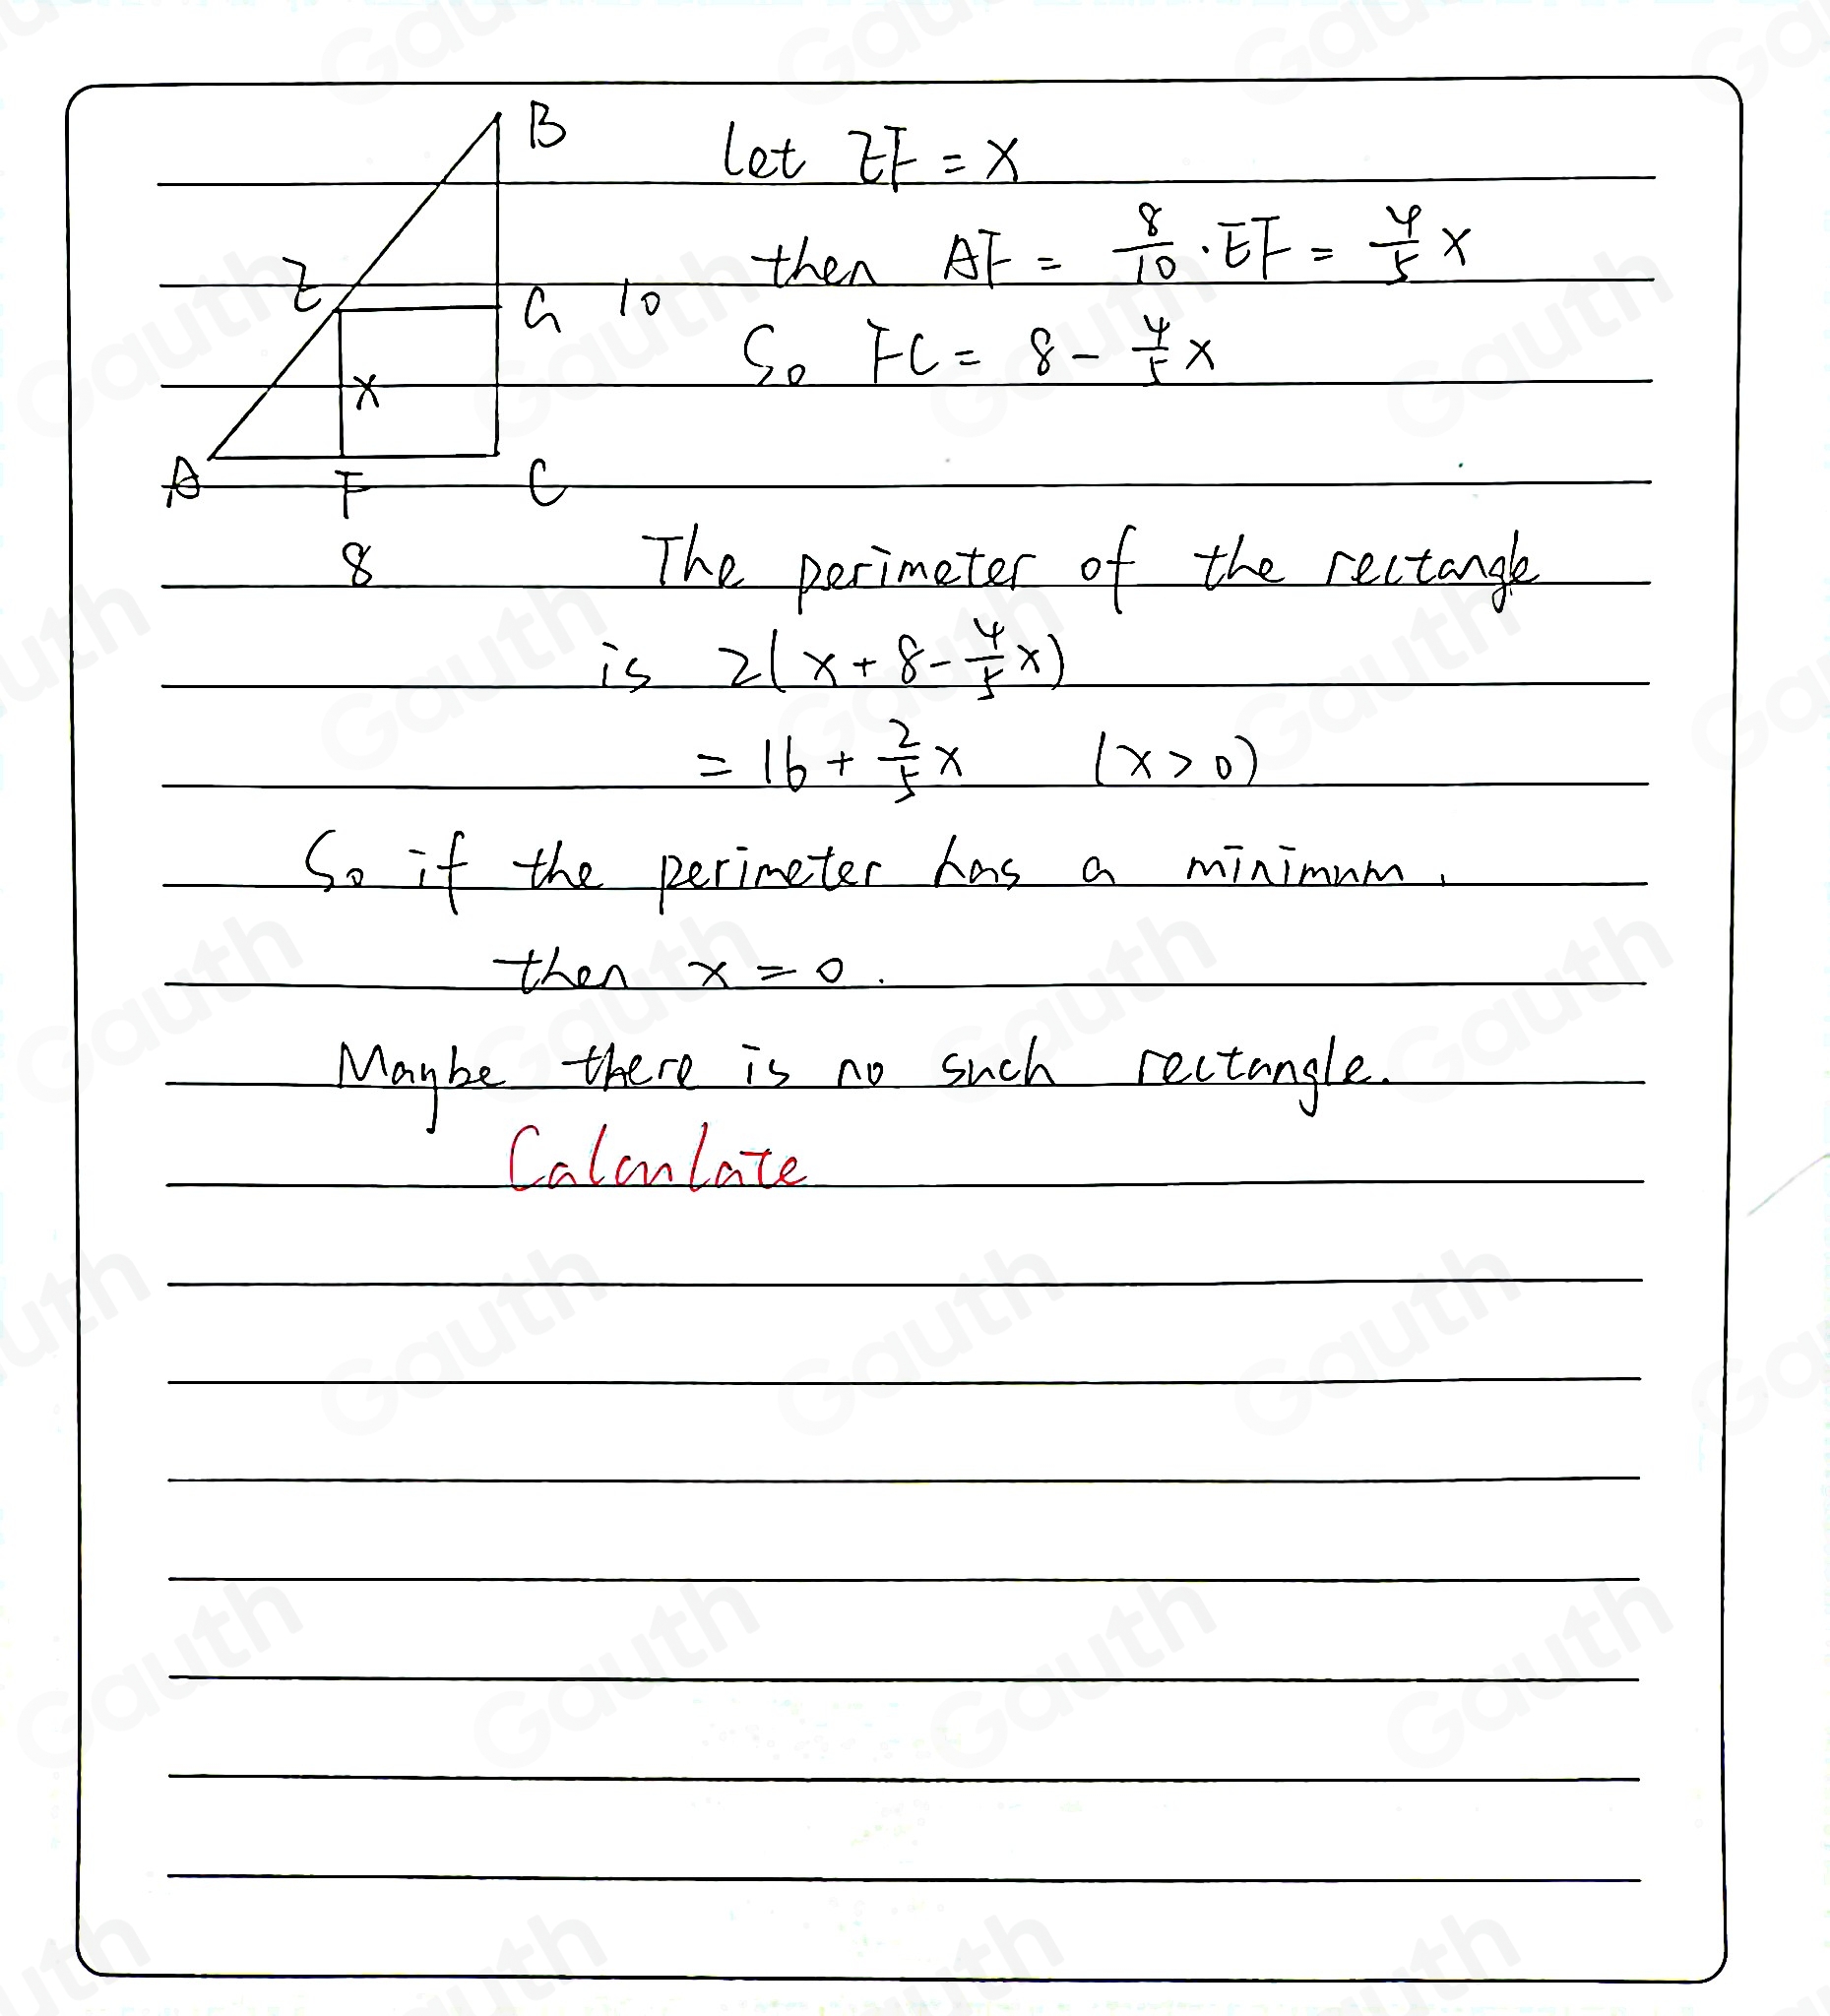 B
let EF = x
then AF = 8/10 · EF = 4/5 x
E
G 10
So FC = 8 - 4/5 x
x
A F C
8
The perimeter of the rectangle
is 2(x + 8 - 4/5 x)
= 16 + 2/5 x (x > 0)
So if the perimeter has a minimum,
then x = 0.
Maybe there is no such rectangle.
Calculate
Gauth